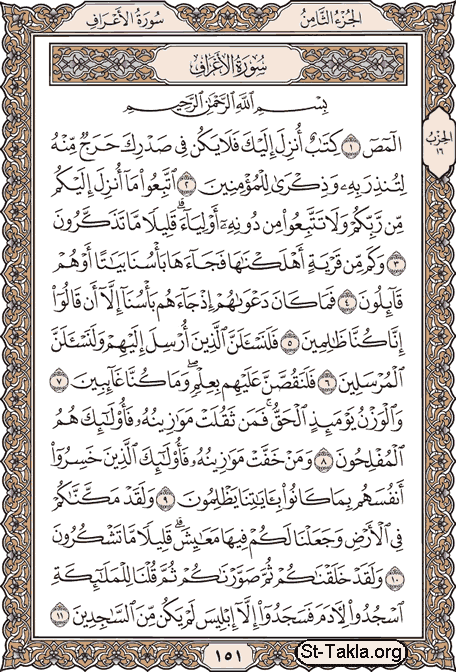 الجزء الثامن
سورة الأعراف
سورة الأعراف
بسم الله الرحمن الرحيم
الحزب
١٦
الٓمٓصٓ ١ كِتَٰبٌ أُنزِلَ إِلَيْكَ فَلَا يَكُن فِى صَدْرِكَ حَرَجٌ مِّنْهُ
لِتُنذِرَ بِهِۦ وَذِكْرَىٰ لِلْمُؤْمِنِينَ ٢ ٱتَّبِعُوا۟ مَآ أُنزِلَ إِلَيْكُم
مِّن رَّبِّكُمْ وَلَا تَتَّبِعُوا۟ مِن دُونِهِۦٓ أَوْلِيَآءَ ۗ قَلِيلًا مَّا تَذَكَّرُونَ
٣ وَكَم مِّن قَرْيَةٍ أَهْلَكْنَٰهَا فَجَآءَهَا بَأْسُنَا بَيَٰتًا أَوْ هُمْ
قَآئِلُونَ ٤ فَمَا كَانَ دَعْوَىٰهُمْ إِذْ جَآءَهُم بَأْسُنَآ إِلَّآ أَن قَالُوٓا۟
إِنَّا كُنَّا ظَٰلِمِينَ ٥ فَلَنَسْـَٔلَنَّ ٱلَّذِينَ أُرْسِلَ إِلَيْهِمْ وَلَنَسْـَٔلَنَّ
ٱلْمُرْسَلِينَ ٦ فَلَنَقُصَّنَّ عَلَيْهِم بِعِلْمٍ ۖ وَمَا كُنَّا غَآئِبِينَ ٧
وَٱلْوَزْنُ يَوْمَئِذٍ ٱلْحَقُّ ۚ فَمَن ثَقُلَتْ مَوَٰزِينُهُۥ فَأُو۟لَٰٓئِكَ هُمُ
ٱلْمُفْلِحُونَ ٨ وَمَنْ خَفَّتْ مَوَٰزِينُهُۥ فَأُو۟لَٰٓئِكَ ٱلَّذِينَ خَسِرُوٓا۟
أَنفُسَهُم بِمَا كَانُوا۟ بِـَٔايَٰتِنَا يَظْلِمُونَ ٩ وَلَقَدْ مَكَّنَّٰكُمْ
فِى ٱلْأَرْضِ وَجَعَلْنَا لَكُمْ فِيهَا مَعَٰيِشَ ۗ قَلِيلًا مَّا تَشْكُرُونَ
١٠ وَلَقَدْ خَلَقْنَٰكُمْ ثُمَّ صَوَّرْنَٰكُمْ ثُمَّ قُلْنَا لِلْمَلَٰٓئِكَةِ
ٱسْجُدُوا۟ لِـَٔادَمَ فَسَجَدُوٓا۟ إِلَّآ إِبْلِيسَ لَمْ يَكُن مِّنَ ٱلسَّٰجِدِينَ ١١
١٥١
St-Takla.org